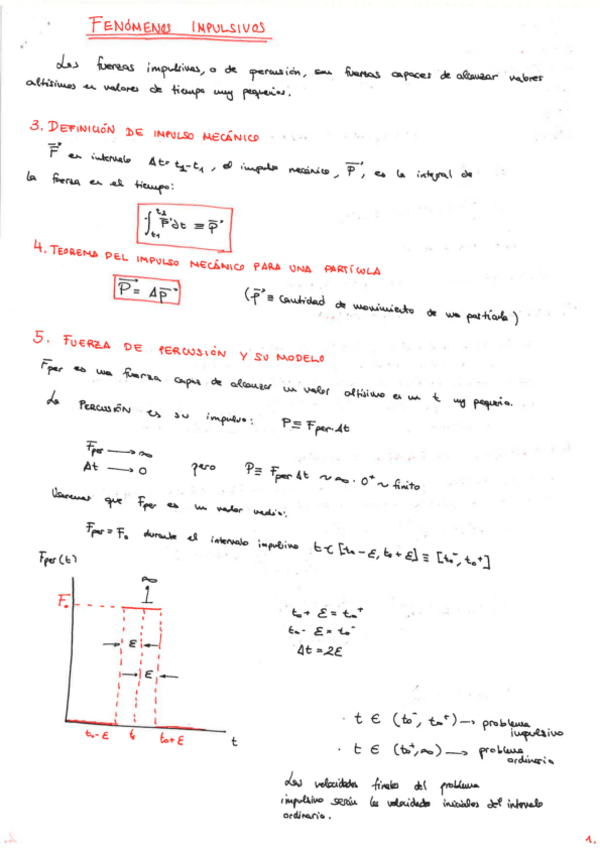 FENÓMENOS IMPULSIVOS
Las fuerzas impulsivas, o de percusión, son fuerzas capaces de alcanzar valores
altísimos en valores de tiempo muy pequeños.
3. DEFINICIÓN DE IMPULSO MECÁNICO
F⃗ en intervalo Δt= t₂-t₁, el impulso mecánico, P⃗, es la integral de
la fuerza en el tiempo:
∫ₜ₁ᵗ² F⃗dt ≡ P⃗
4. TEOREMA DEL IMPULSO MECÁNICO PARA UNA PARTÍCULA
P⃗ = Δp⃗ (p⃗ ≡ cantidad de movimiento de una partícula)
5. FUERZA DE PERCUSIÓN Y SU MODELO
Fper es una fuerza capaz de alcanzar un valor altísimo en un t muy pequeño.
La PERCUSIÓN es su impulso: P ≡ Fper·Δt
Fper → ∞
Δt → 0 pero P ≡ Fper Δt ~ ∞ · 0⁺ ~ finito
Usaremos que Fper es un valor medio:
Fper = F₀ durante el intervalo impulsivo t ∈ [t₀-ε, t₀+ε] ≡ [t₀⁻, t₀⁺]
Fper(t)
∞
F₀
ε
ε
t₀-ε t₀ t₀+ε t
t₀ + ε = t₀⁺
t₀ - ε = t₀⁻
Δt = 2ε
· t ∈ (t₀⁻, t₀⁺) → problema
impulsivo
· t ∈ (t₀⁺, ∞) → problema
ordinario
Las velocidades finales del problema
impulsivo serán las velocidades iniciales del intervalo
ordinario.
1.